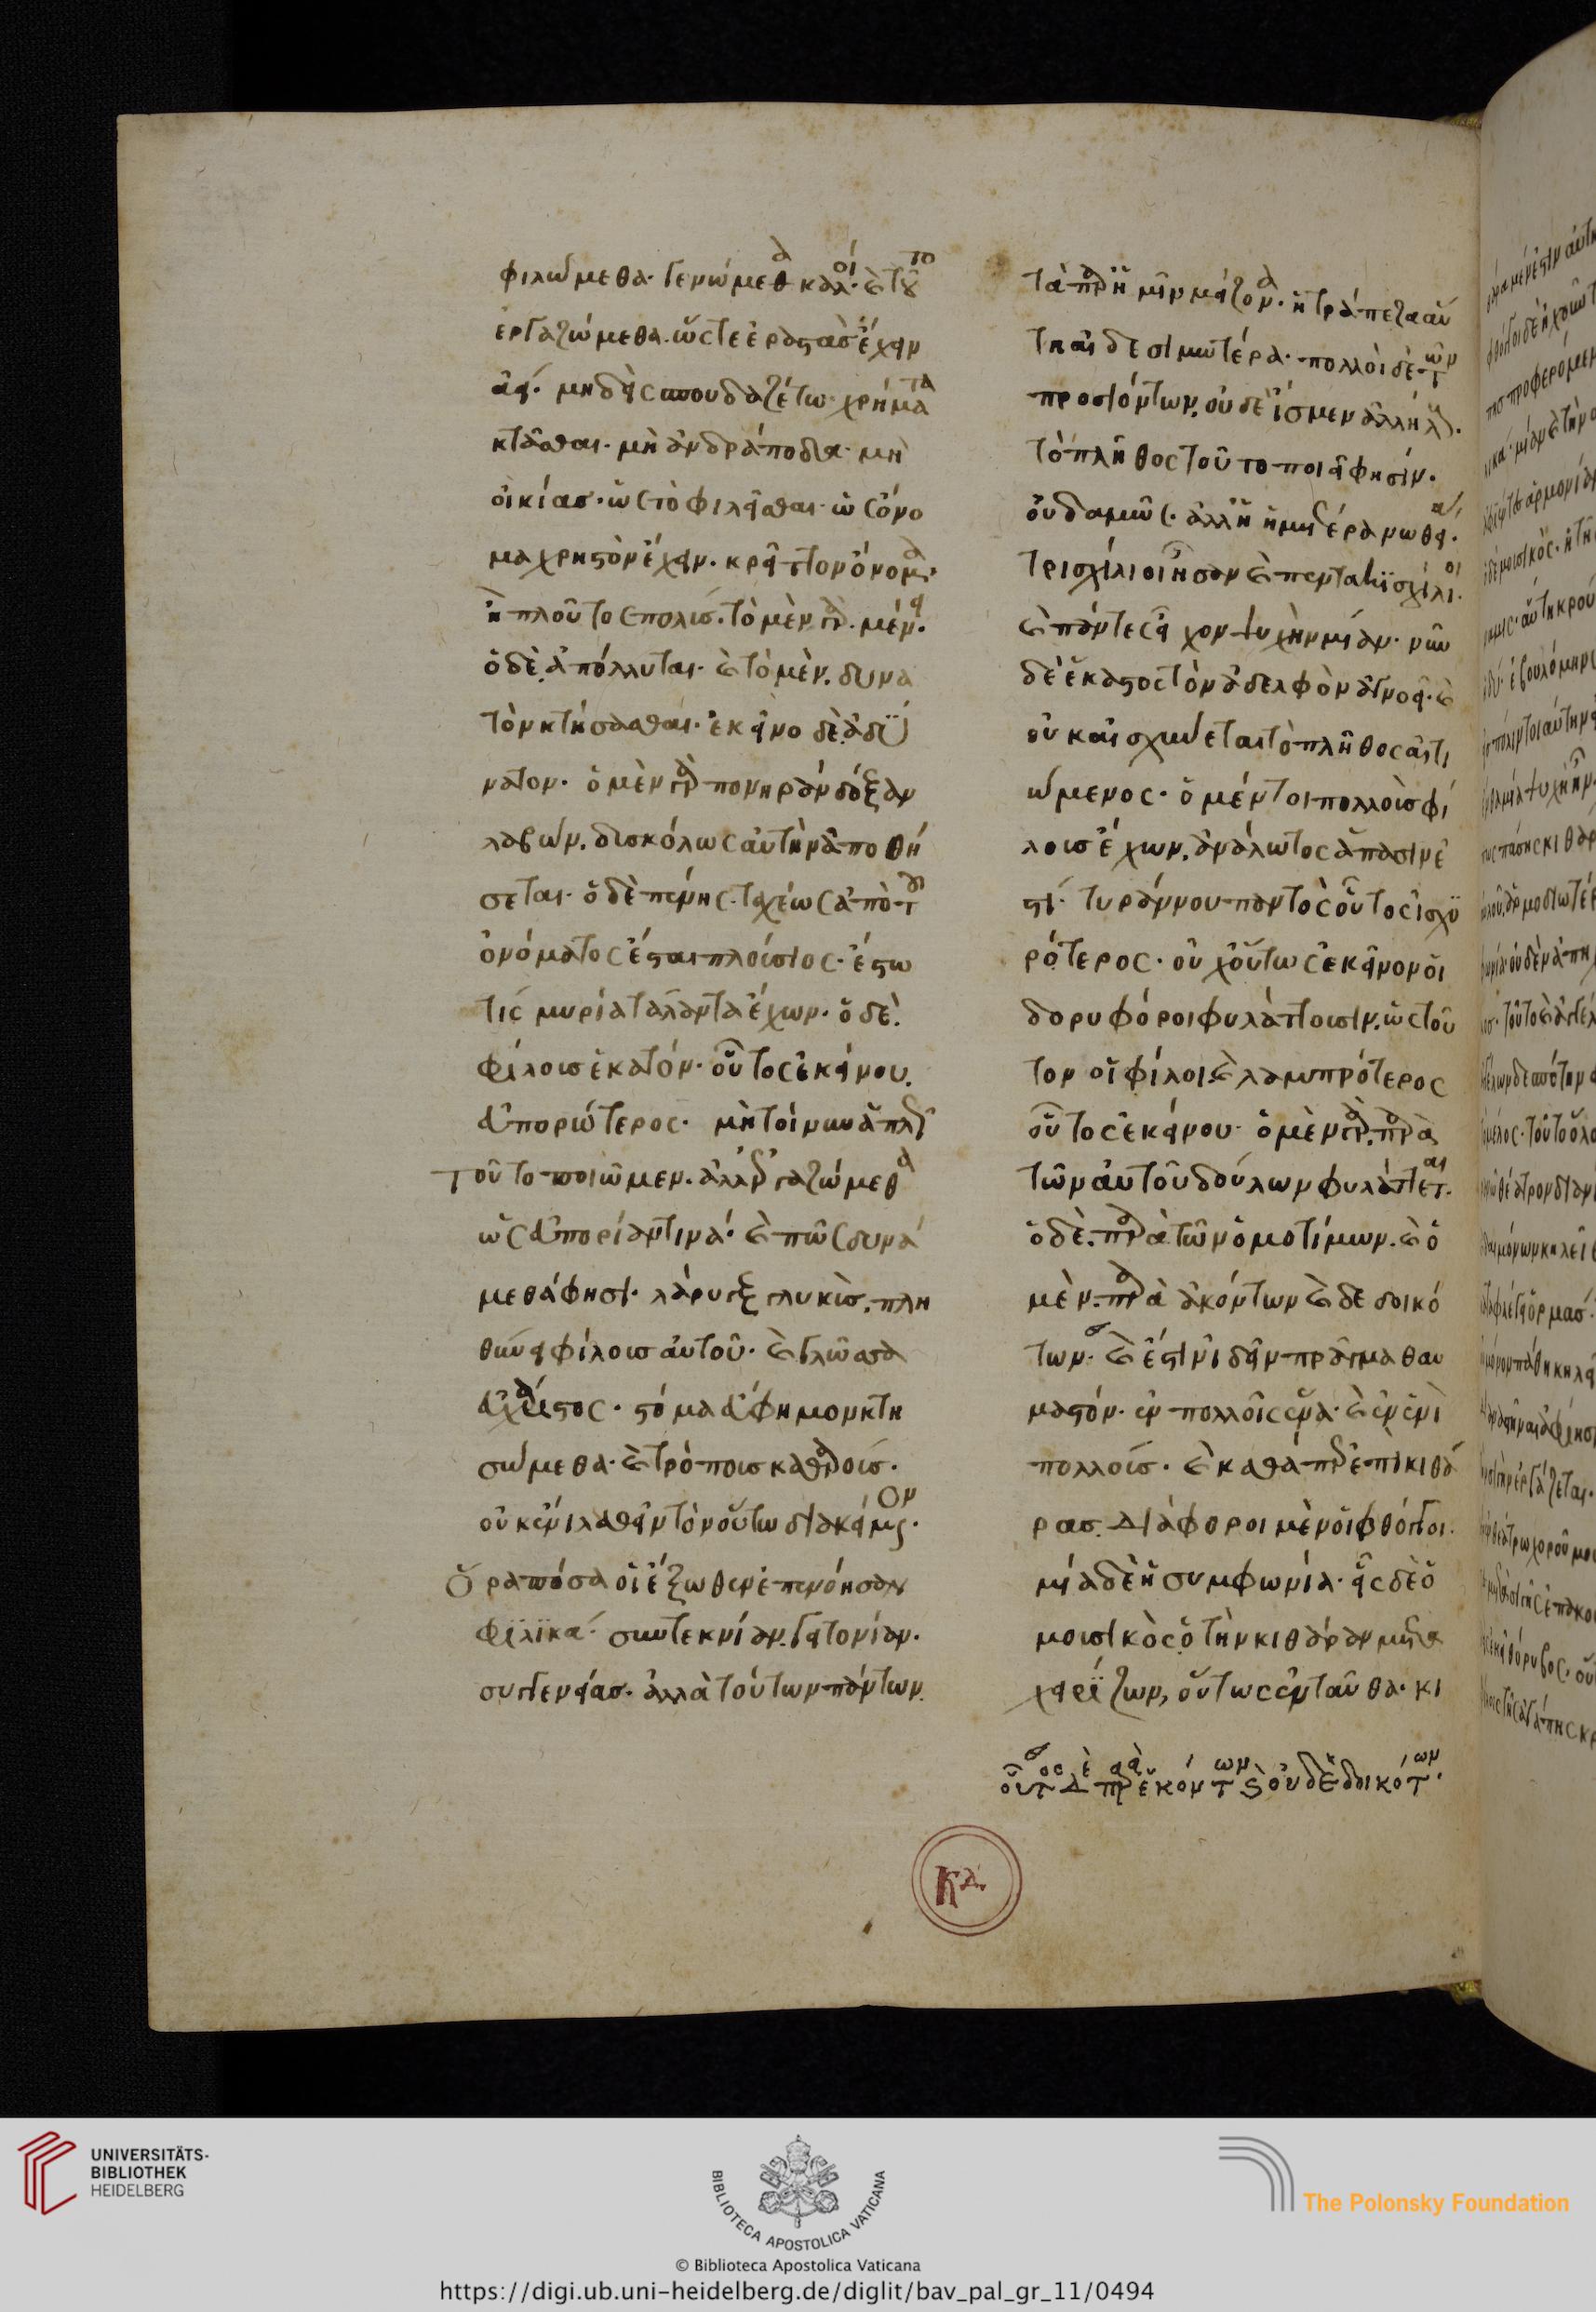 φιλώμεθα· γενώμεθα καλοί· καὶ τοῦτο
ἐργαζώμεθα. ὥστε ἐραστὰς ἔχειν
ἀεί· μηδεὶς σπουδαζέτω χρήματα
κτᾶσθαι· μὴ ἀνδράποδα· μὴ
οἰκίας· ὡς τὸ φιλεῖσθαι· ὡς ὄνο
μα χρηστὸν ἔχειν. κρεῖττον ὄνομα
ἢ πλοῦτος πολύς. τὸ μὲν γὰρ μένει·
ὁ δὲ ἀπόλλυται· καὶ τὸ μὲν. δυνα
τὸν κτήσασθαι· ἐκεῖνο δὲ ἀδύ
νατον· ὁ μὲν γὰρ πονηρὰν δόξαν
λαβὼν. δυσκόλως αὐτὴν ἀποθή
σεται· ὁ δὲ πένης. ταχέως ἀπὸ τοῦ
ὀνόματος ἔσται πλούσιος· ἔστω
τὶς μυρία τάλαντα ἔχων· ὁ δὲ.
φίλους ἑκατόν· οὗτος ἐκείνου.
εὐπορώτερος· μὴ τοίνυν ἁπλῶς
τοῦτο ποιῶμεν. ἀλλ' ἐργαζώμεθα
ὡς εὐπορίαν τινά· καὶ πῶς δυνά
μεθά φησι· λάρυγξ γλυκὺς. πλη
θύνει φίλους αὐτοῦ· καὶ γλῶσσα
εὐχάριστος· στόμα εὔφημον κτη
σώμεθα· καὶ τρόπους καθαρούς·
οὐκ ἔνι λαθεῖν τὸν οὕτω διακείμενον·
Ὅρα πόσα οἱ ἔξωθεν ἐπενόησαν
φιλικά· συντεκνίαν. γειτονίαν.
συγγενείας· ἀλλὰ τούτων πάντων
τὰ παρ' ἡμῖν μείζονα· ἡ τράπεζα αὕ
τη αἰδεσιμωτέρα· πολλοὶ δὲ τῶν
προσιόντων. οὐδὲ ἴσμεν ἀλλήλους.
τὸ πλῆθος τοῦτο ποιεῖ φησίν·
οὐδαμῶς· ἀλλ' ἡ ἡμετέρα νωθεία·
τρισχίλιοι ἦσαν καὶ πεντακισχίλιοι·
καὶ πάντες εἶχον ψυχὴν μίαν· νῦν
δὲ ἕκαστος τὸν ἀδελφὸν ἀγνοεῖ· καὶ
οὐκ αἰσχύνεται τὸ πλῆθος αἰτι
ώμενος· ὁ μέντοι πολλοὺς φί
λους ἔχων. ἀνάλωτος ἅπασιν ἐ
στί· τυράννου παντὸς οὗτος ἰσχυ
ρότερος· οὐχ οὕτως ἐκεῖνον οἱ
δορυφόροι φυλάττουσιν. ὡς τοῦ
τον οἱ φίλοι· καὶ λαμπρότερος
οὗτος ἐκείνου· ὁ μὲν γὰρ. παρὰ
τῶν αὐτοῦ δούλων φυλάττεται·
ὁ δὲ. παρὰ τῶν ὁμοτίμων. καὶ ὁ
μὲν. παρὰ ἀκόντων καὶ δεδοικό
των· καὶ ἔστιν ἰδεῖν πρᾶγμα θαυ
μαστόν· ἐν πολλοῖς ἕνα· καὶ ἐν ἑνὶ
πολλούς· καὶ καθάπερ ἐπὶ κιθά
ρας. διάφοροι μὲν οἱ φθόγγοι·
μία δὲ ἡ συμφωνία· εἷς δὲ ὁ
μουσικὸς ὁ τὴν κιθάραν μετα
χειρίζων, οὕτως ἐνταῦθα· κι
οὗτος δὲ παρὰ ἑκόντων καὶ οὐ δεδοικότων·
UNIVERSITÄTS-
BIBLIOTHEK
HEIDELBERG
BIBLIOTECA APOSTOLICA VATICANA
The Polonsky Foundation
© Biblioteca Apostolica Vaticana
https://digi.ub.uni-heidelberg.de/diglit/bav_pal_gr_11/0494